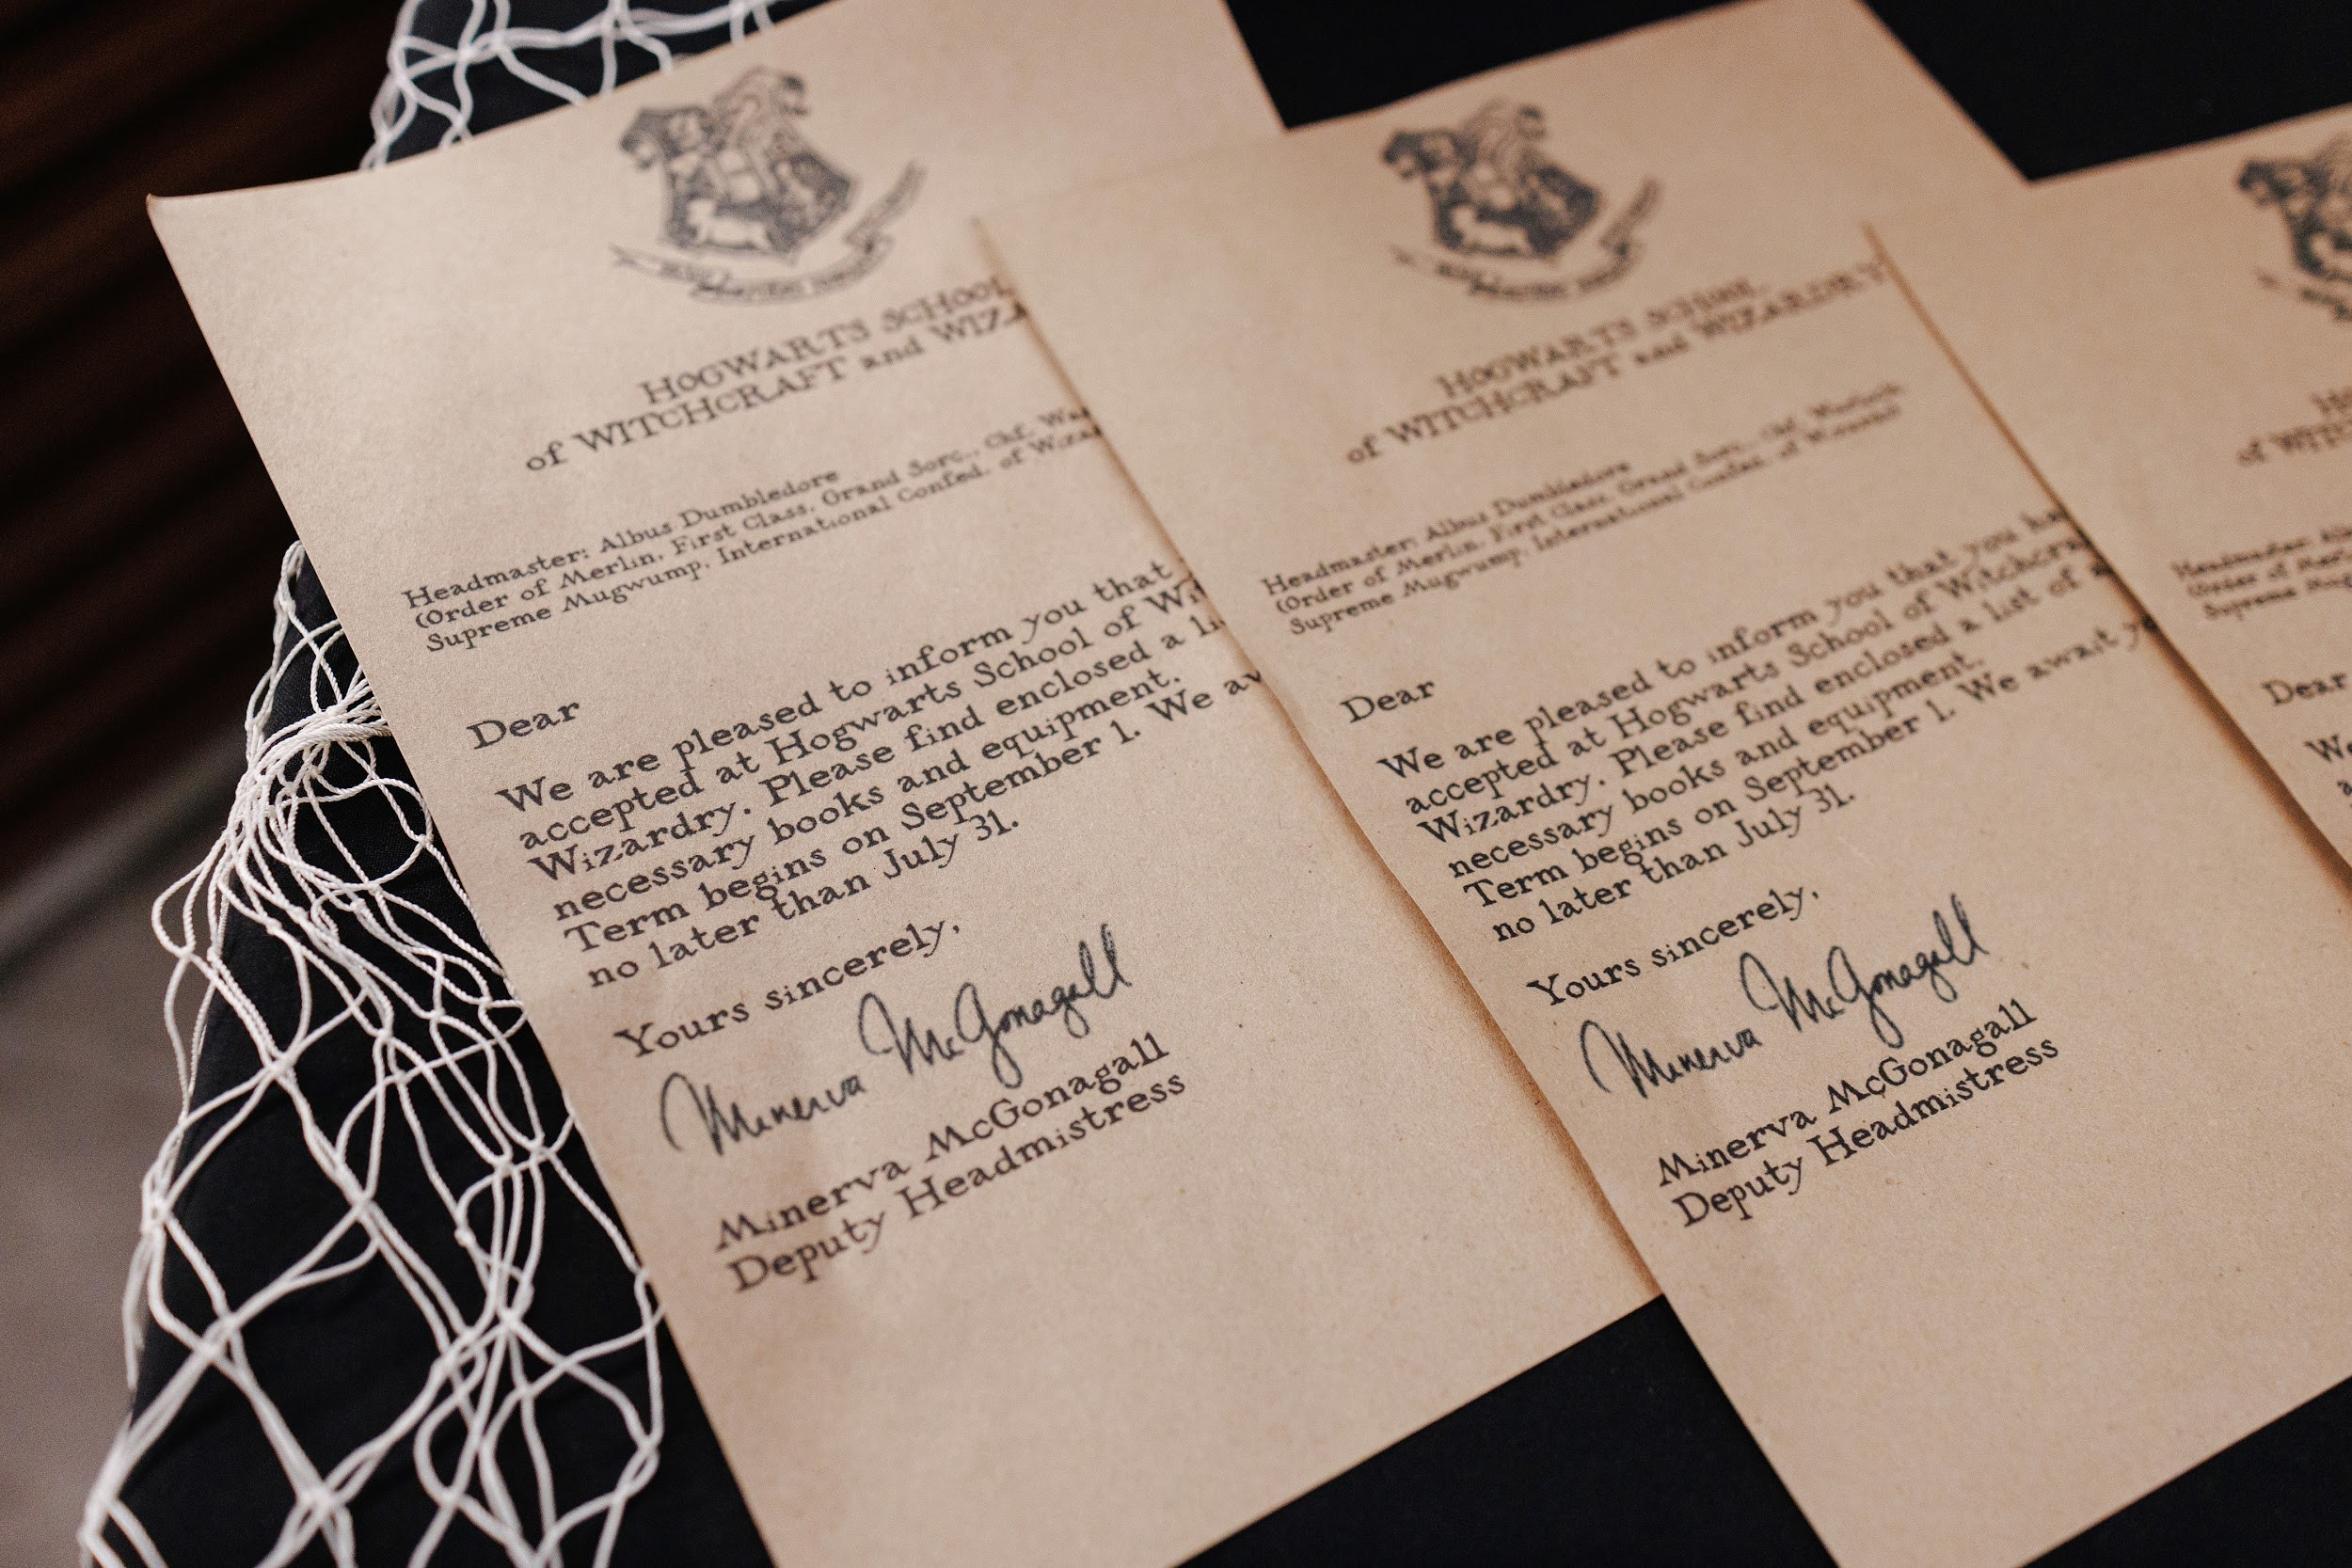 HOGWARTS SCHOOL
of WITCHCRAFT and WIZA
Headmaster: Albus Dumbledore
(Order of Merlin, First Class, Grand Sorc., Chf. Wa
Supreme Mugwump, International Confed. of Wizar
Dear
We are pleased to inform you that
accepted at Hogwarts School of Wit
Wizardry. Please find enclosed a li
necessary books and equipment.
Term begins on September 1. We aw
no later than July 31.
Yours sincerely,
Minerva McGonagall
Minerva McGonagall
Deputy Headmistress
HOGWARTS SCHOOL
of WITCHCRAFT and WIZARDRY
Headmaster: Albus Dumbledore
(Order of Merlin, First Class, Grand Sorc., Chf. Warlock
Supreme Mugwump, International Confed. of Wizards)
Dear
We are pleased to inform you that you ha
accepted at Hogwarts School of Witchcra
Wizardry. Please find enclosed a list of a
necessary books and equipment.
Term begins on September 1. We await yo
no later than July 31.
Yours sincerely,
Minerva McGonagall
Minerva McGonagall
Deputy Headmistress
Headmaster:
(Order of
Supreme
Dear
We